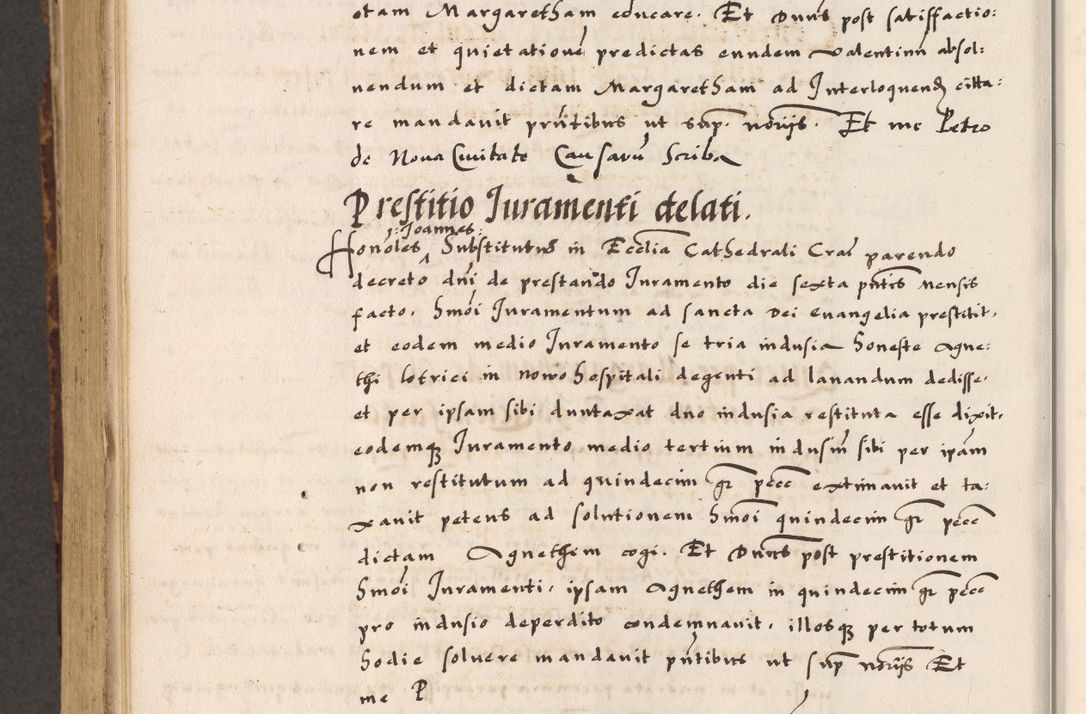 otam Margaretham educare. Et Dnus post satisfactio:
nem et quietationem predictas eundem Valentinum absol:
vendum et dictam Margaretham ad Interloquend citta:
re mandavit pntibus ut sup. notijs. Et me Petro
de Nova Civitate Causarum Scriba
Prestitio Juramenti delati.
: Joannes :
Honobles Substitutus in Ecclia Cathedrali Cracovien parendo
decreto dni de prestando Juramento die sexta pntis mensis
facto. Hmoi Juramentum ad sancta Dei evangelia prestitit.
et eodem medio Juramento se tria indusia honeste Agne:
thi lotrici in novo hospitali degenti ad lavandum dedisse.
et per ipsam sibi duntaxat duo indusia restituta esse dixit.
eodemq Juramento medio tertium indusium sibi per ipam
non restitutum ad quindecim gr pecc extimavit et ta:
xavit petens ad solutionem Hmoi quindecim gr pecc
dictam Agnethem cogi. Et Dnus post prestitionem
Hmoi Juramenti. ipsam Agnethem in quindecim gr pecc
pro indusio deperdito condemnavit. illosq per totum
hodie solvere mandavit pntibus ut sup notijs Et
me P